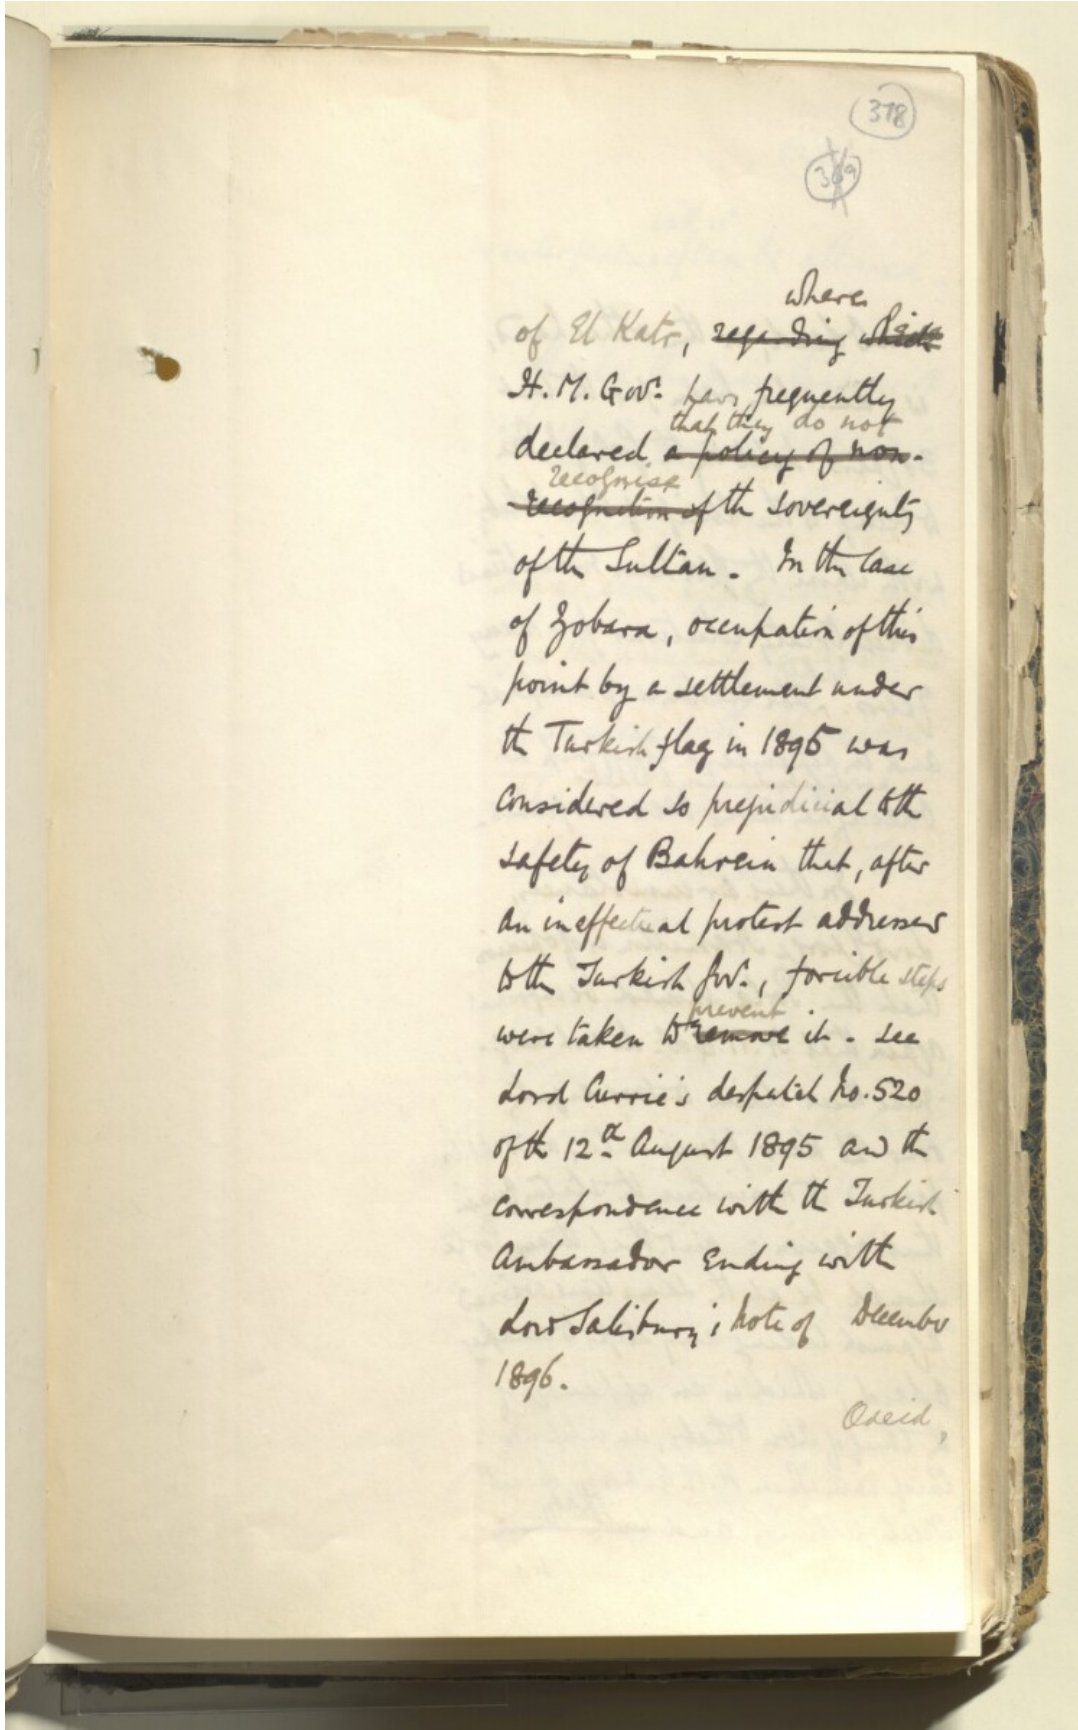 378
369
where
of El Katr, regarding which
H. M. Govt. have frequently
that they do not
declared a policy of non-
recognise
recognition of the sovereignty
of the Sultan. In the case
of Zobara, occupation of this
point by a settlement under
the Turkish flag in 1895 was
considered so prejudicial to the
safety of Bahrein that, after
an ineffectual protest addressed
to the Turkish Gov., forcible steps
prevent
were taken to remove it. See
Lord Currie's despatch No. 520
of the 12th August 1895 and the
correspondence with the Turkish
Ambassador ending with
Lord Salisbury's Note of December
1896.
Odeid,